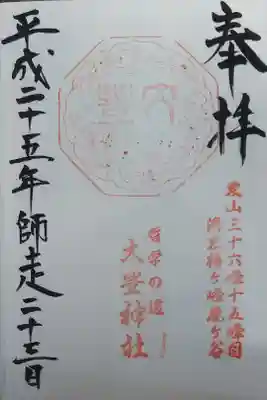 奉拝
東山三十六峰十五峰目
椿ヶ峰鹿ヶ谷
哲学の道
大豊神社
平成二十五年師走二十三日